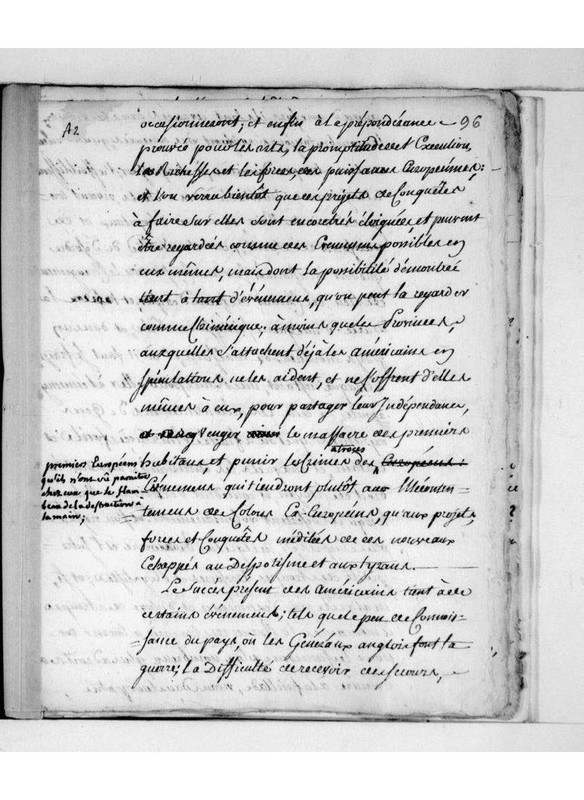 A2
96
occasionneront; et enfin à la prépondérance
prouvée pour les arts, la promptitude et Execution,
les Richesses et les forces, des puissances Européennes:
et l'on verra bientôt que des projets de Conquêtes
à faire sur elles sont encore très éloignées, et peuvent
être regardés comme des Evénemens possibles en
eux mêmes, mais dont la possibilité démontrée
tient à tant d'événemens, qu'on peut la regarder
comme Chimérique; à moins que les Provinces,
auxquelles s'attachent déja les américains en
spéculations ne les aident, et ne s'offrent d'elles
mêmes à eux, pour partager leur Indépendance,
Venger le massacre des premiers
habitans, et punir les Crimes atroces des Européens:
premiers Européens
qu'ils n'ont vû paroitre
chez eux que le flam-
beau de la destruction à
la main;
Evénemens qui tiendront plutôt au Mécontn-
tement des Colons Co-Européens, qu'aux projets,
forces et Conquêtes médités de ces nouveaux
Echappés au Despotisme et aux tyrans.
Le Succès présent des américains tient à de
certains événemens; tels que le peu de Connois-
-sance du pays, où les Généraux anglois font la
guerre; la Difficulté de recevoir des secours,